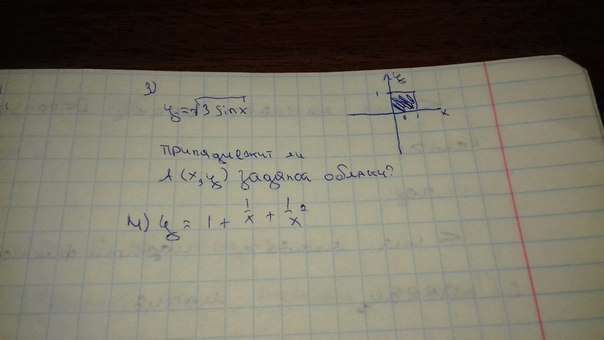 3)
y = √3 sin x
y
1
1
x
принадлежит ли
A (x, y) заданой области?
4) y = 1 + 1/x + 1/x²